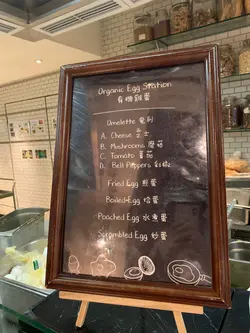 Organic Egg Station
有機雞蛋
Omelette 奄列
A. Cheese 芝士
B. Mushrooms 蘑菇
C. Tomato 蕃茄
D. Bell Peppers 彩椒
Fried Egg 煎蛋
Boiled Egg 烚蛋
Poached Egg 水煮蛋
Scrambled Egg 炒蛋